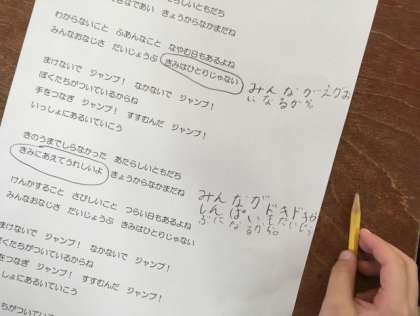 きょうからなかまだね
わからないこと ふあんなこと なやむ日もあるよね
みんなおなじさ だいじょうぶ きみはひとりじゃない
みんながえがお
になるから
まけないで ジャンプ! なかないで ジャンプ!
ぼくたちがついているからね
手をつなぎ ジャンプ! すすむんだ ジャンプ!
いっしょにあるいていこう
きのうまでしらなかった あたらしいともだち
きみにあえてうれしいよ きょうからなかまだね
けんかすること さびしいこと つらい日もあるよね
みんなおなじさ だいじょうぶ きみはひとりじゃない
みんなが ドキドキや
しんぱいもだいじょう
ぶになるから。
まけないで ジャンプ! なかないで ジャンプ!
ぼくたちがついているからね
をつなぎ ジャンプ! すすむんだ ジャンプ!
しょにあるいていこう
ちがついている